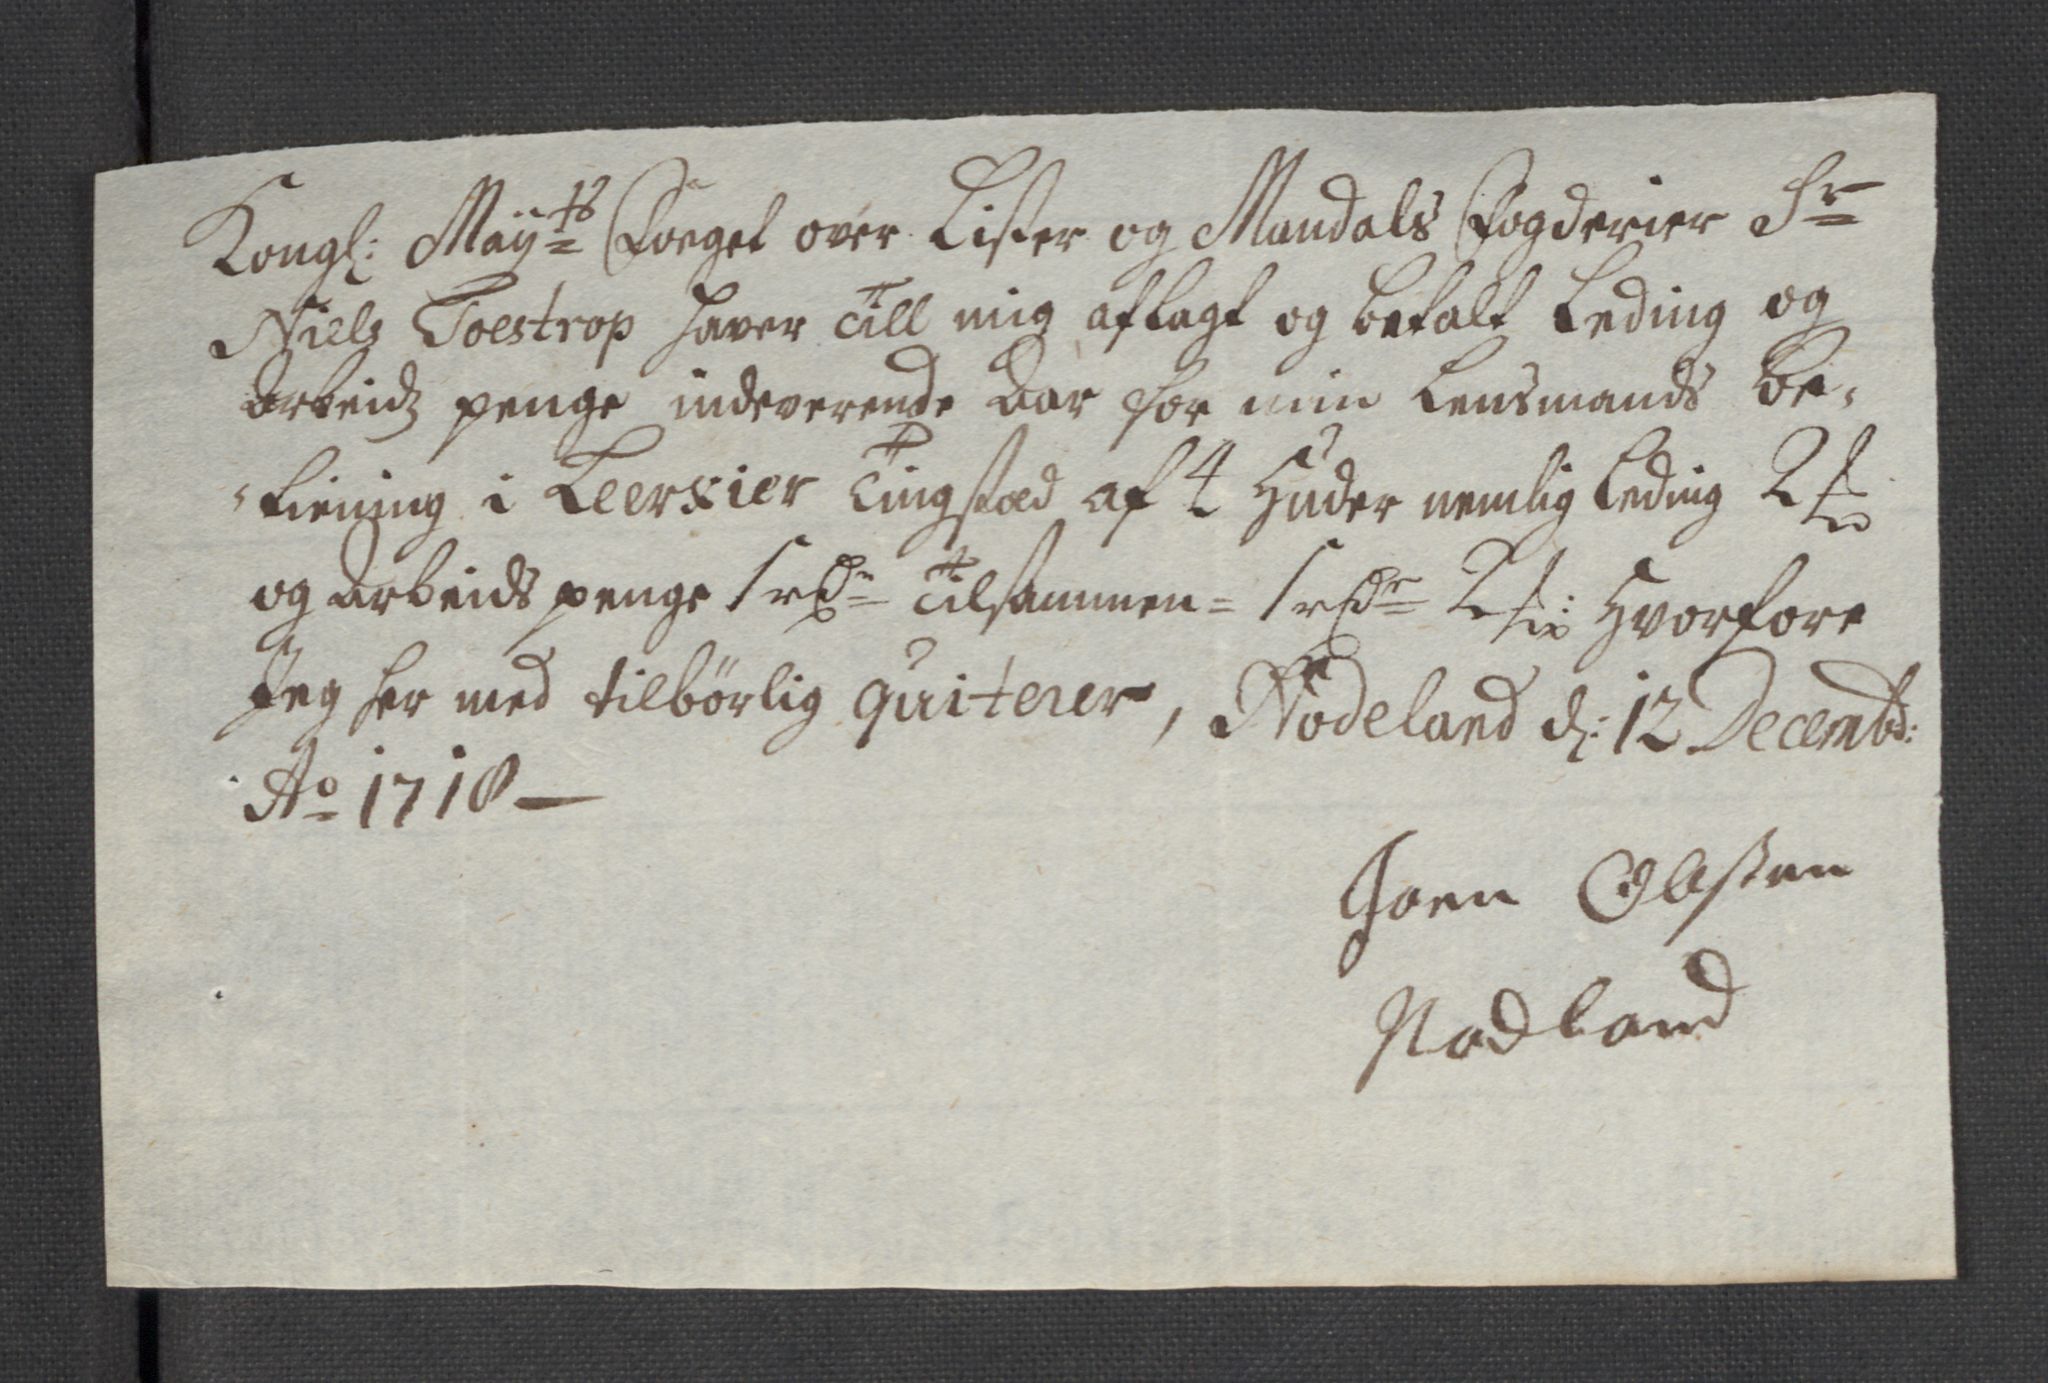 Kongl: Maÿts Foeget over Lister og Mandals Fogderier Sr
Niels Toestrop haver till mig aflagt og betalt Leding og
Arbeidz penge indeverende Aar for min Lensmands be-
-tiening i Leervier Tingstæd af 4 Huder nemlig Leding 2
og Arbeids penge 1 rdr tilsammen = 1 rdr 2 Hvorfore
Jeg her med tilbørlig quiterer, Nodeland d: 12 Decembr:
Ao 1718
Joen Olssen
Nodland